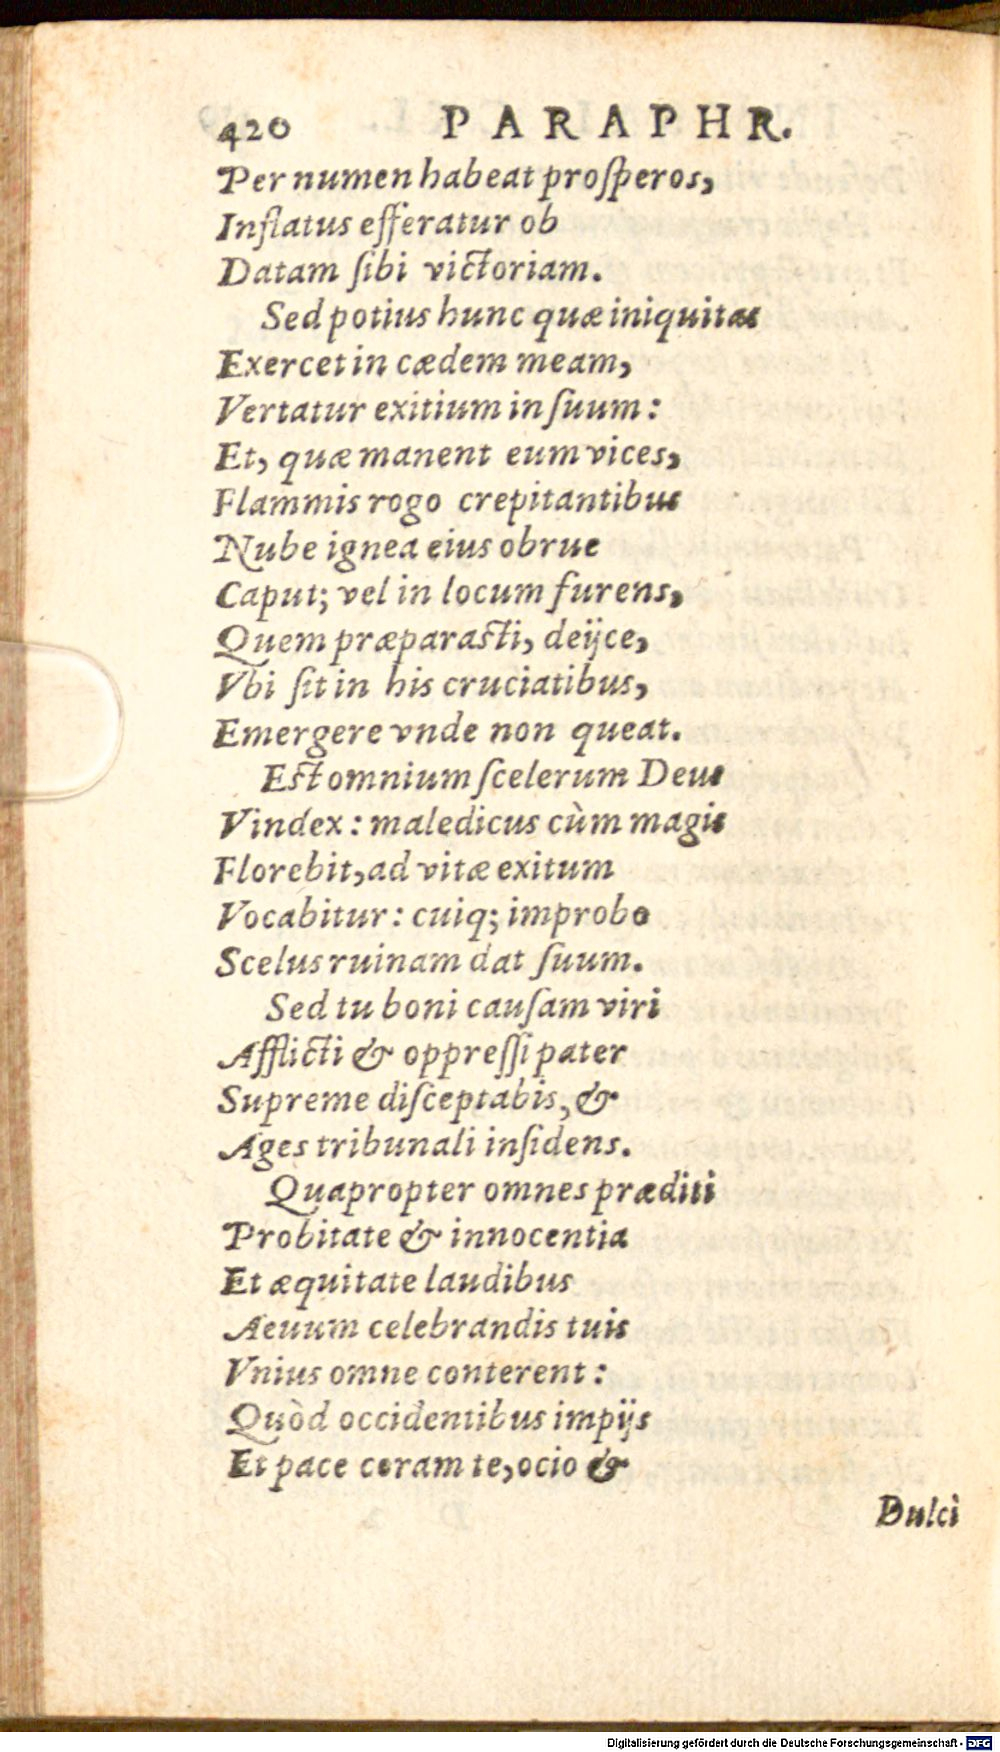 420 PARAPHR.
Per numen habeat proſperos,
Inflatus efferatur ob
Datam ſibi victoriam.
Sed potius hunc quæ iniquitas
Exercet in cædem meam,
Vertatur exitium in ſuum:
Et, quæ manent eum vices,
Flammis rogo crepitantibus
Nube ignea eius obrue
Caput; vel in locum furens,
Quem præparaſti, deijce,
Vbi ſit in his cruciatibus,
Emergere vnde non queat.
Eſt omnium ſcelerum Deus
Vindex: maledicus cùm magis
Florebit, ad vitæ exitum
Vocabitur: cuiq; improbo
Scelus ruinam dat ſuum.
Sed tu boni cauſam viri
Afflicti & oppreſſi pater
Supreme diſceptabis, &
Ages tribunali inſidens.
Quapropter omnes præditi
Probitate & innocentia
Et æquitate laudibus
Aeuum celebrandis tuis
Vnius omne conterent:
Quòd occidentibus impijs
Et pace coram te, ocio &
Dulci
Digitalisierung gefördert durch die Deutsche Forschungsgemeinschaft - DFG